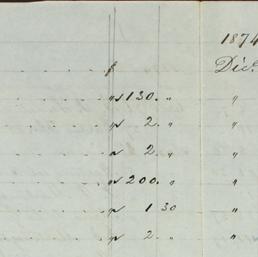 1874
$ Dec.
" 130. " "
" 2. " "
" 2. " "
" 200. " "
" 1 30 "
" 2. " "